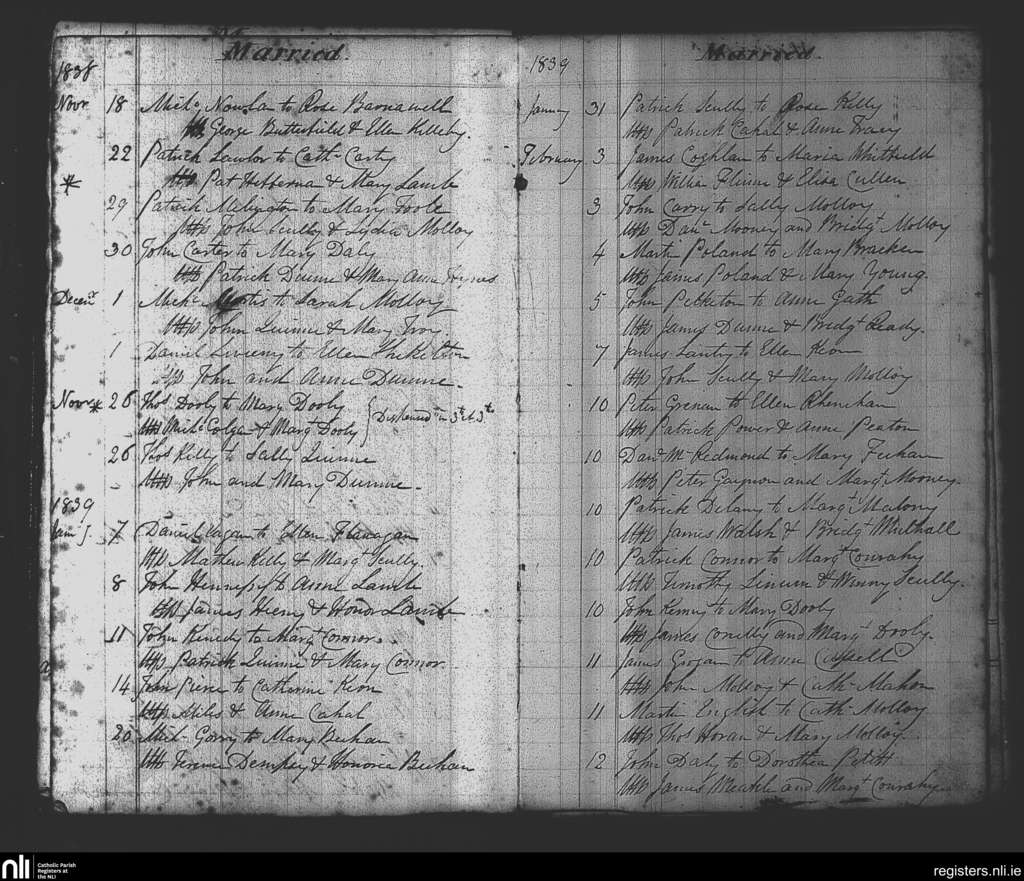 Married.
1838
Novr 18 Mich. Nowlan to Rose Barnawell
George Butterfield & Ellen Killeby.
22 Patrick Lawlor to Cath. Carty
Pat Heffernan & Mary Lamb
29 Patrick to Mary Toole
John Scully & Lydia Molloy
30 John Carter to Mary Daly
Patrick Dunne & Mary Anne Hynes
Decemr 1 Mich. to Sarah Molloy
John Quinne & Mary Troy
1 Daniel Sweeny to Ellen
John and Anne Dunne.
Novr * 26 Thos Dooly to Mary Dooly
Mich. Colgan & Margt Dooly
26 Thos Kelly to Sally Quinne
John and Mary Dunne.
1839
7 Daniel to Ellen Flanagan
Mathew Kelly & Margt Scully.
8 John Hennessy to Anne Lamb
James & Honor Lamb
11 John Kenedy to Margt Connor.
Patrick Quinne & Mary Connor.
14 John Pierce to Catherine Keon
Miles & Anne Cahal
20 Mich. Gorry to Mary Beehan
Dempsey & Honorea Beehan
Married.
1839
January 31 Patrick Scully to Rose Kelly
Patrick Cahal & Anne Tracy
February 3 James Coghlan to Maria Whitfield
William Flinne & Elisa Cullen
3 John Corry to Sally Molloy
Danl Mooney and Bridgt Molloy
4 Martin Poland to Mary Bracken
James Poland & Mary Young.
5 John to Anne Gath
James Dunne & Bridgt Ready.
7 James to Ellen Keon
John Scully & Mary Molloy
10 Peter Grenan to Ellen
Patrick Power & Anne Peaton
10 Danl McRedmond to Mary Feehan
Peter Gaynon and Margt Mooney.
10 Patrick Delany to Margt Malony
James Walsh & Bridgt Mulhall
10 Patrick Connor to Margt Conrahy
Timothy & Winny Scully.
10 John Kenny to Mary Dooly
James and Margt Dooly.
11 James Grogan to Anne
John Molloy & Cath. Mahon
11 Martin English to Cath. Molloy
Thos Horan & Mary Molloy
12 John Daly to Dorothea Petitt
James and Margt Conrahy
nli
Catholic Parish
Registers at
the NLI
registers.nli.ie